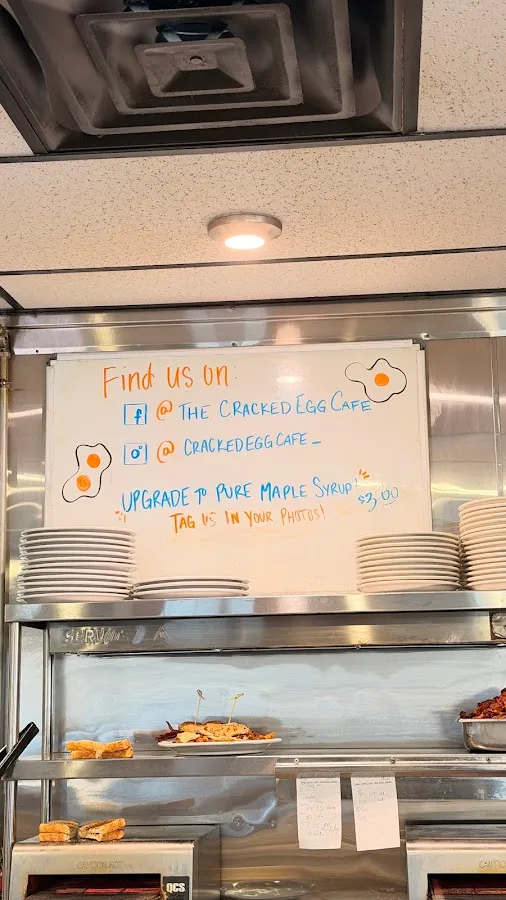 Find us on:
f @ THE CRACKED EGG CAFE
@ CRACKEDEGGCAFE_
UPGRADE TO PURE MAPLE SYRUP! $3.00
"TAG US IN YOUR PHOTOS!
SERV
CAUTION HOT
QCS
CAUTIO